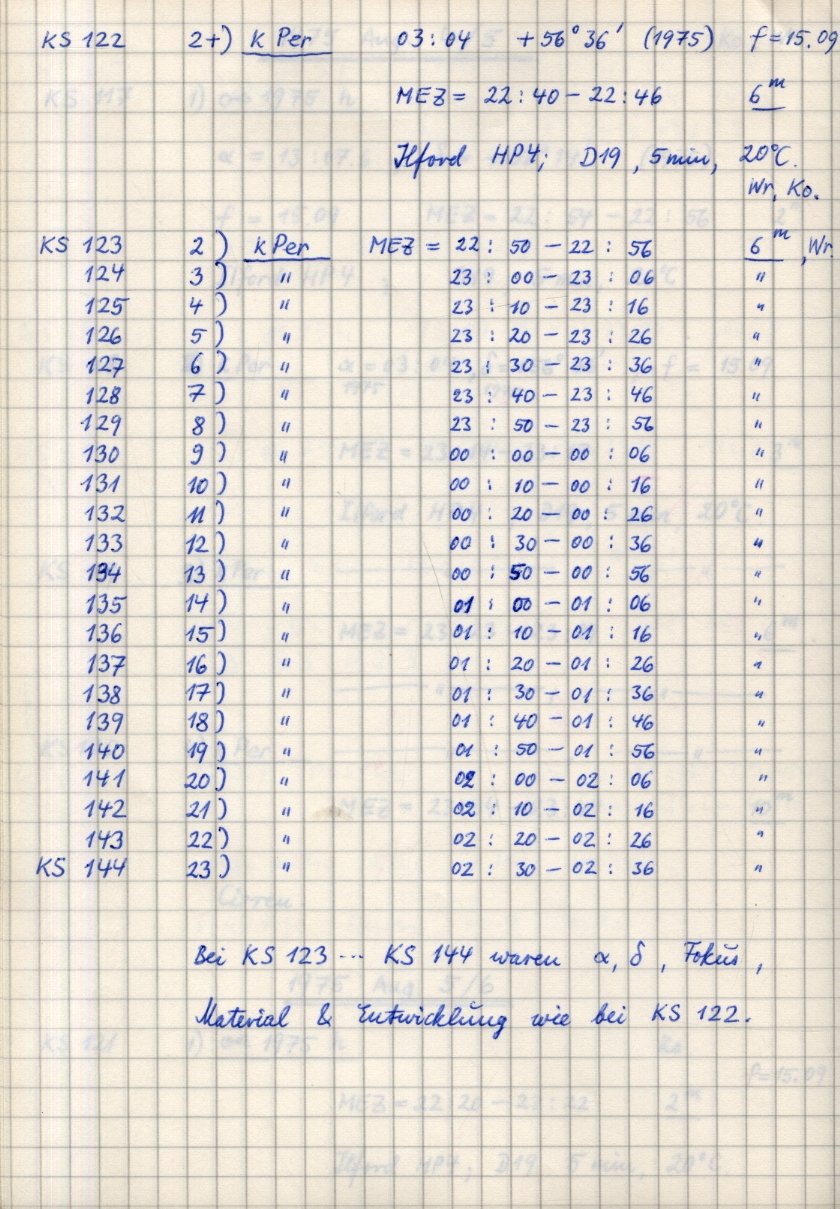 KS 122 2+) k Per 03:04 +56° 36' (1975) f=15.09
MEZ = 22:40 – 22:46 6ᵐ
Ilford HP4, D19, 5 min, 20°C.
Wr, Ko.
KS 123 2) k Per MEZ = 22 : 50 – 22 : 56 6ᵐ, Wr.
124 3) " 23 : 00 – 23 : 06 "
125 4) " 23 : 10 – 23 : 16 "
126 5) " 23 : 20 – 23 : 26 "
127 6) " 23 : 30 – 23 : 36 "
128 7) " 23 : 40 – 23 : 46 "
129 8) " 23 : 50 – 23 : 56 "
130 9) " 00 : 00 – 00 : 06 "
131 10) " 00 : 10 – 00 : 16 "
132 11) " 00 : 20 – 00 : 26 "
133 12) " 00 : 30 – 00 : 36 "
134 13) " 00 : 50 – 00 : 56 "
135 14) " 01 : 00 – 01 : 06 "
136 15) " 01 : 10 – 01 : 16 "
137 16) " 01 : 20 – 01 : 26 "
138 17) " 01 : 30 – 01 : 36 "
139 18) " 01 : 40 – 01 : 46 "
140 19) " 01 : 50 – 01 : 56 "
141 20) " 02 : 00 – 02 : 06 "
142 21) " 02 : 10 – 02 : 16 "
143 22) " 02 : 20 – 02 : 26 "
KS 144 23) " 02 : 30 – 02 : 36 "
Bei KS 123 ... KS 144 waren α, δ, Fokus,
Material & Entwicklung wie bei KS 122.